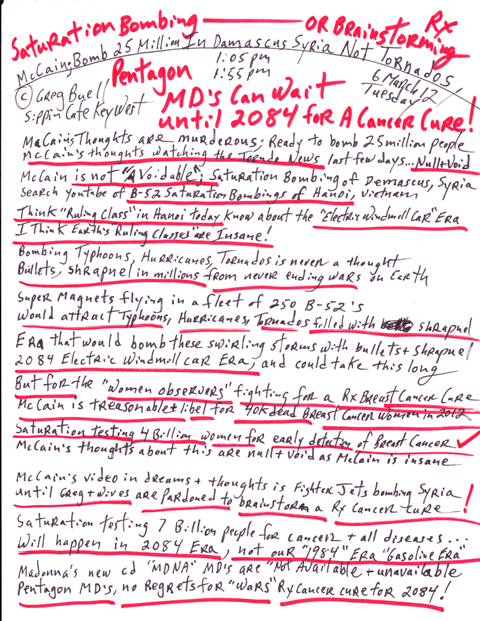 Saturation Bombing — or Brainstorming Rx
McCain, Bomb 25 Million In Damascus Syria Not Tornados,
1:05 pm
1:55 pm
6 March 12
Tuesday
Pentagon
© Greg Buell
Sippin Cafe Key West
MD's Can Wait
until 2084 for A Cancer Cure!
McCain's Thoughts are murderous; Ready to bomb 25 million people
McCain's thoughts watching the Tornado News last few days... Null+Void
McCain is not "Avoidable"; Saturation Bombing of Demascus, Syria
Search youtube of B-52 Saturation Bombings of Hanoi, Vietnam
Think "Ruling Class" in Hanoi today know about the "Electric Windmill Car" Era
I Think Earth's Ruling Classes" are Insane!
Bombing Typhoons, Hurricanes, Tornados is never a thought
Bullets, shrapnel in millions from never ending wars on Earth
Super Magnets flying in a fleet of 250 B-52's
would attract Typhoons, Hurricanes, Tornados filled with shrapnel
Era that would bomb these swirling storms with bullets + shrapnel
2084 Electric Windmill car Era, and could take this long
But for the "Women observers" fighting for a Rx Breast Cancer Cure
McCain is treasonable + libel for 40K dead Breast Cancer Women in 2012
Saturation testing 4 Billion women for early detection of Breast Cancer ✓
McCain's thoughts about this are null + void as McCain is insane
McCain's video in dreams + thoughts is Fighter Jets bombing Syria
until Greg + Wives are pardoned to brainstorm a Rx Cancer Cure!
Saturation testing 7 Billion people for cancer + all diseases...
Will happen in 2084 Era, not our "1984" Era "Gasoline Era"
Madonna's new cd "MDNA" MD's are "Not Available + unavailable
Pentagon MD's, no Regrets for "Wars" Rx Cancer cure for 2084!